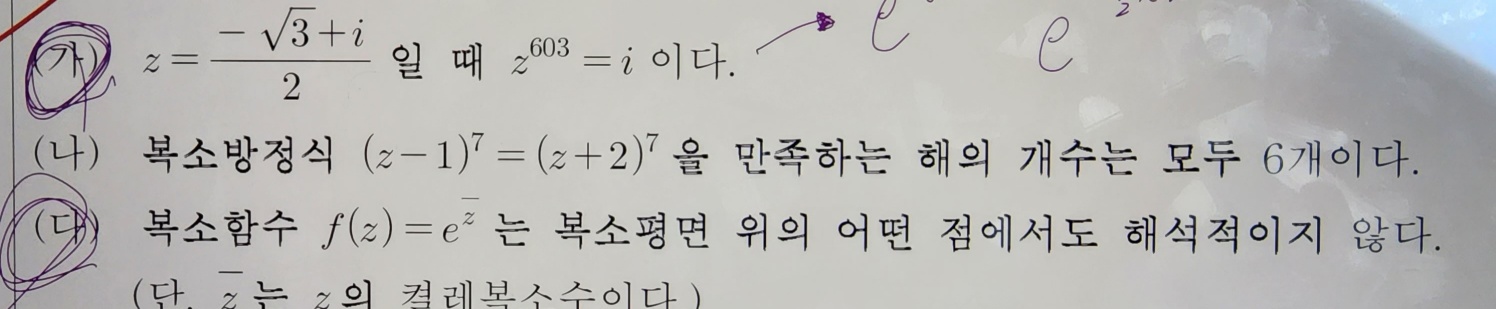 (가) z = \frac{-\sqrt{3}+i}{2} 일 때 z^{603} = i 이다. e e
(나) 복소방정식 (z-1)^7 = (z+2)^7 을 만족하는 해의 개수는 모두 6개이다.
(다) 복소함수 f(z) = e^{\overline{z}} 는 복소평면 위의 어떤 점에서도 해석적이지 않다.
(단, \overline{z} 는 z 의 켤레복소수이다.)